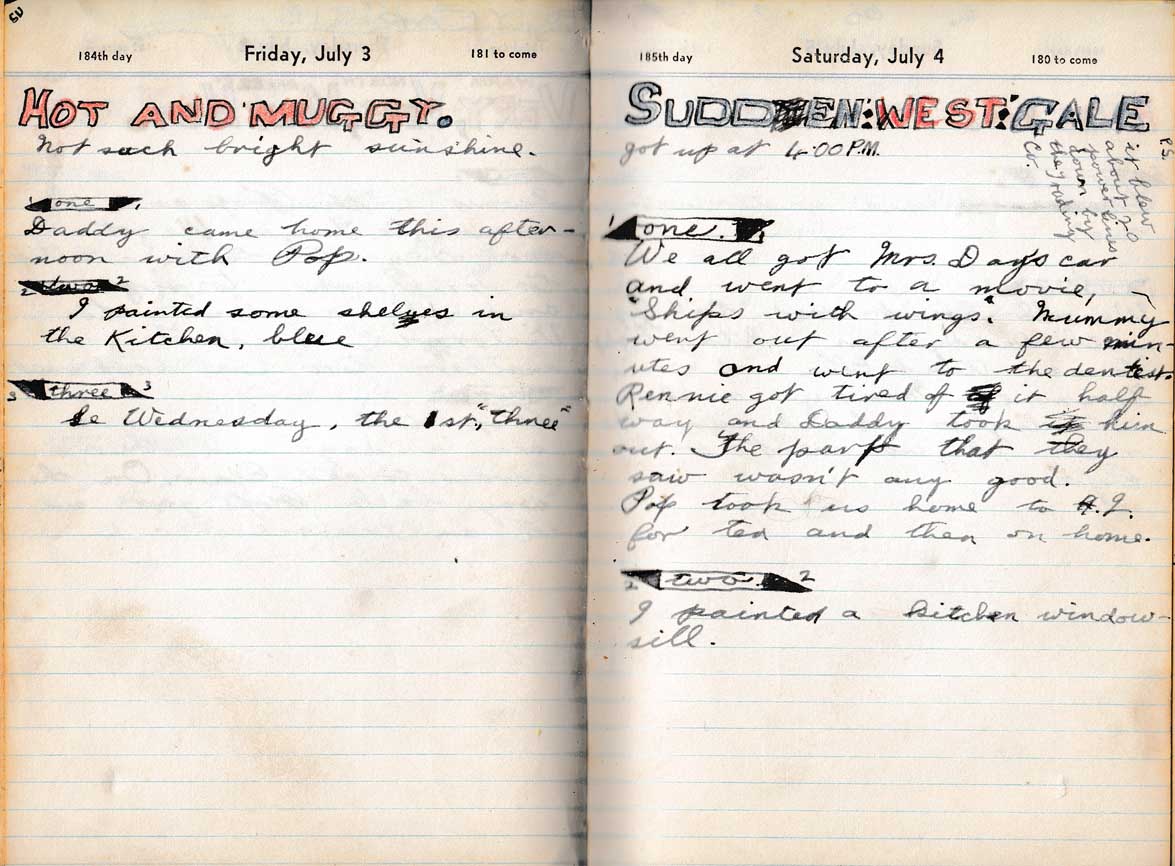 184th day Friday, July 3 181 to come
HOT AND MUGGY.
Not such bright sunshine.
1 one 1
Daddy came home this after-
noon with Pop.
2 two 2
I painted some shelves in
the Kitchen, blue
3 three 3
Se Wednesday, the 1st, "three"
185th day Saturday, July 4 180 to come
SUDDEN:WEST:GALE
got up at 4:00 P.M.
P.S.
it blew
about 20
power lines
down by
the grading
Co.
1 one. 1
We all got Mrs. Days car
and went to a movie, -
"Ships with wings". Mummy
went out after a few min-
utes and went to the dentist.
Rennie got tired of it half
way and Daddy took him
out. The part that they
saw wasn't any good.
Pop took us home to
for tea and then on home.
2 two. 2
I painted a kitchen window-
sill.